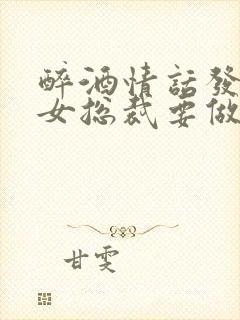 醉酒情話發
女总裁要做
甘雯